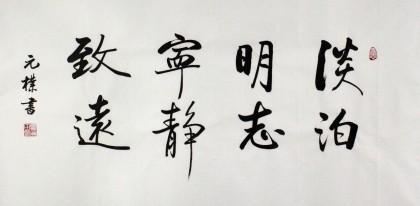 淡泊
明志
寧静
致遠
元樸書